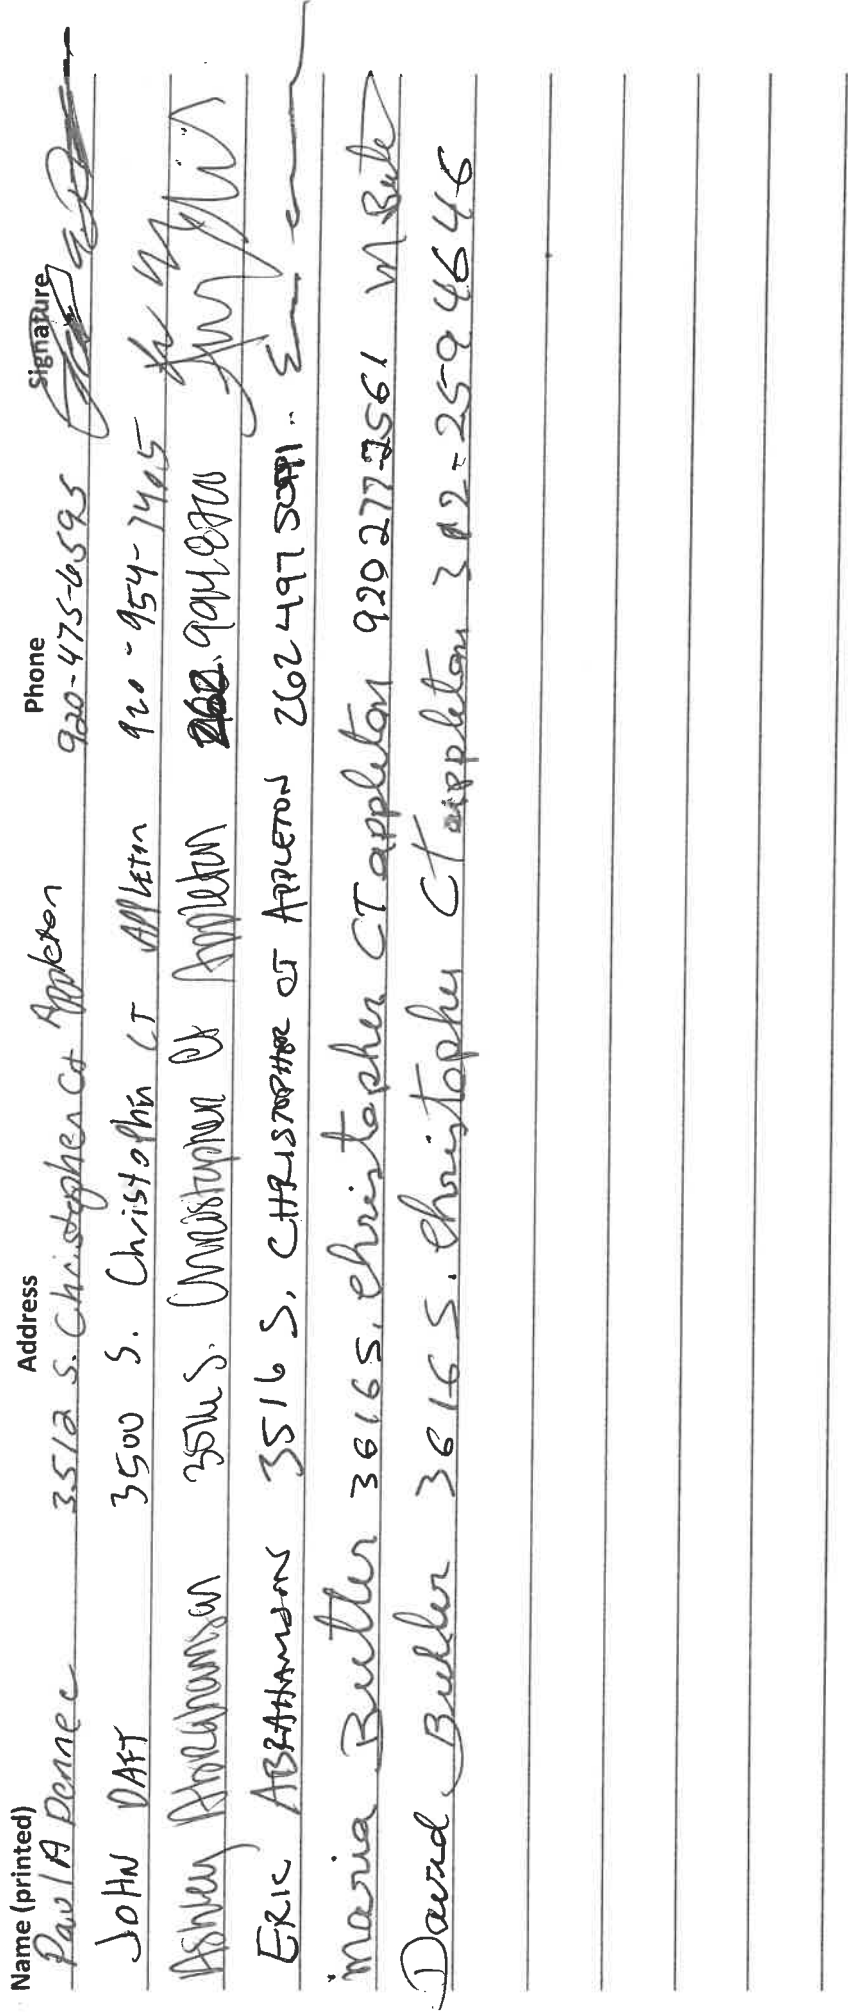 Name (printed) Address Phone Signature
Paul A Penne 3512 S. Christopher Ct Appleton 920-475-6595
JOHN DAFT 3500 S. Christopher CT Appleton 920-954-7405
Ashley Abrahamson S. Christopher Ct Appleton
ERIC ABRAHAMSON 3516 S. CHRISTOPHER CT APPLETON 262 497
Maria Butler 3616 S. Christopher CT appleton 920 277-2561
David Buhler 3616 S. Christopher CT appleton 312-259 4646